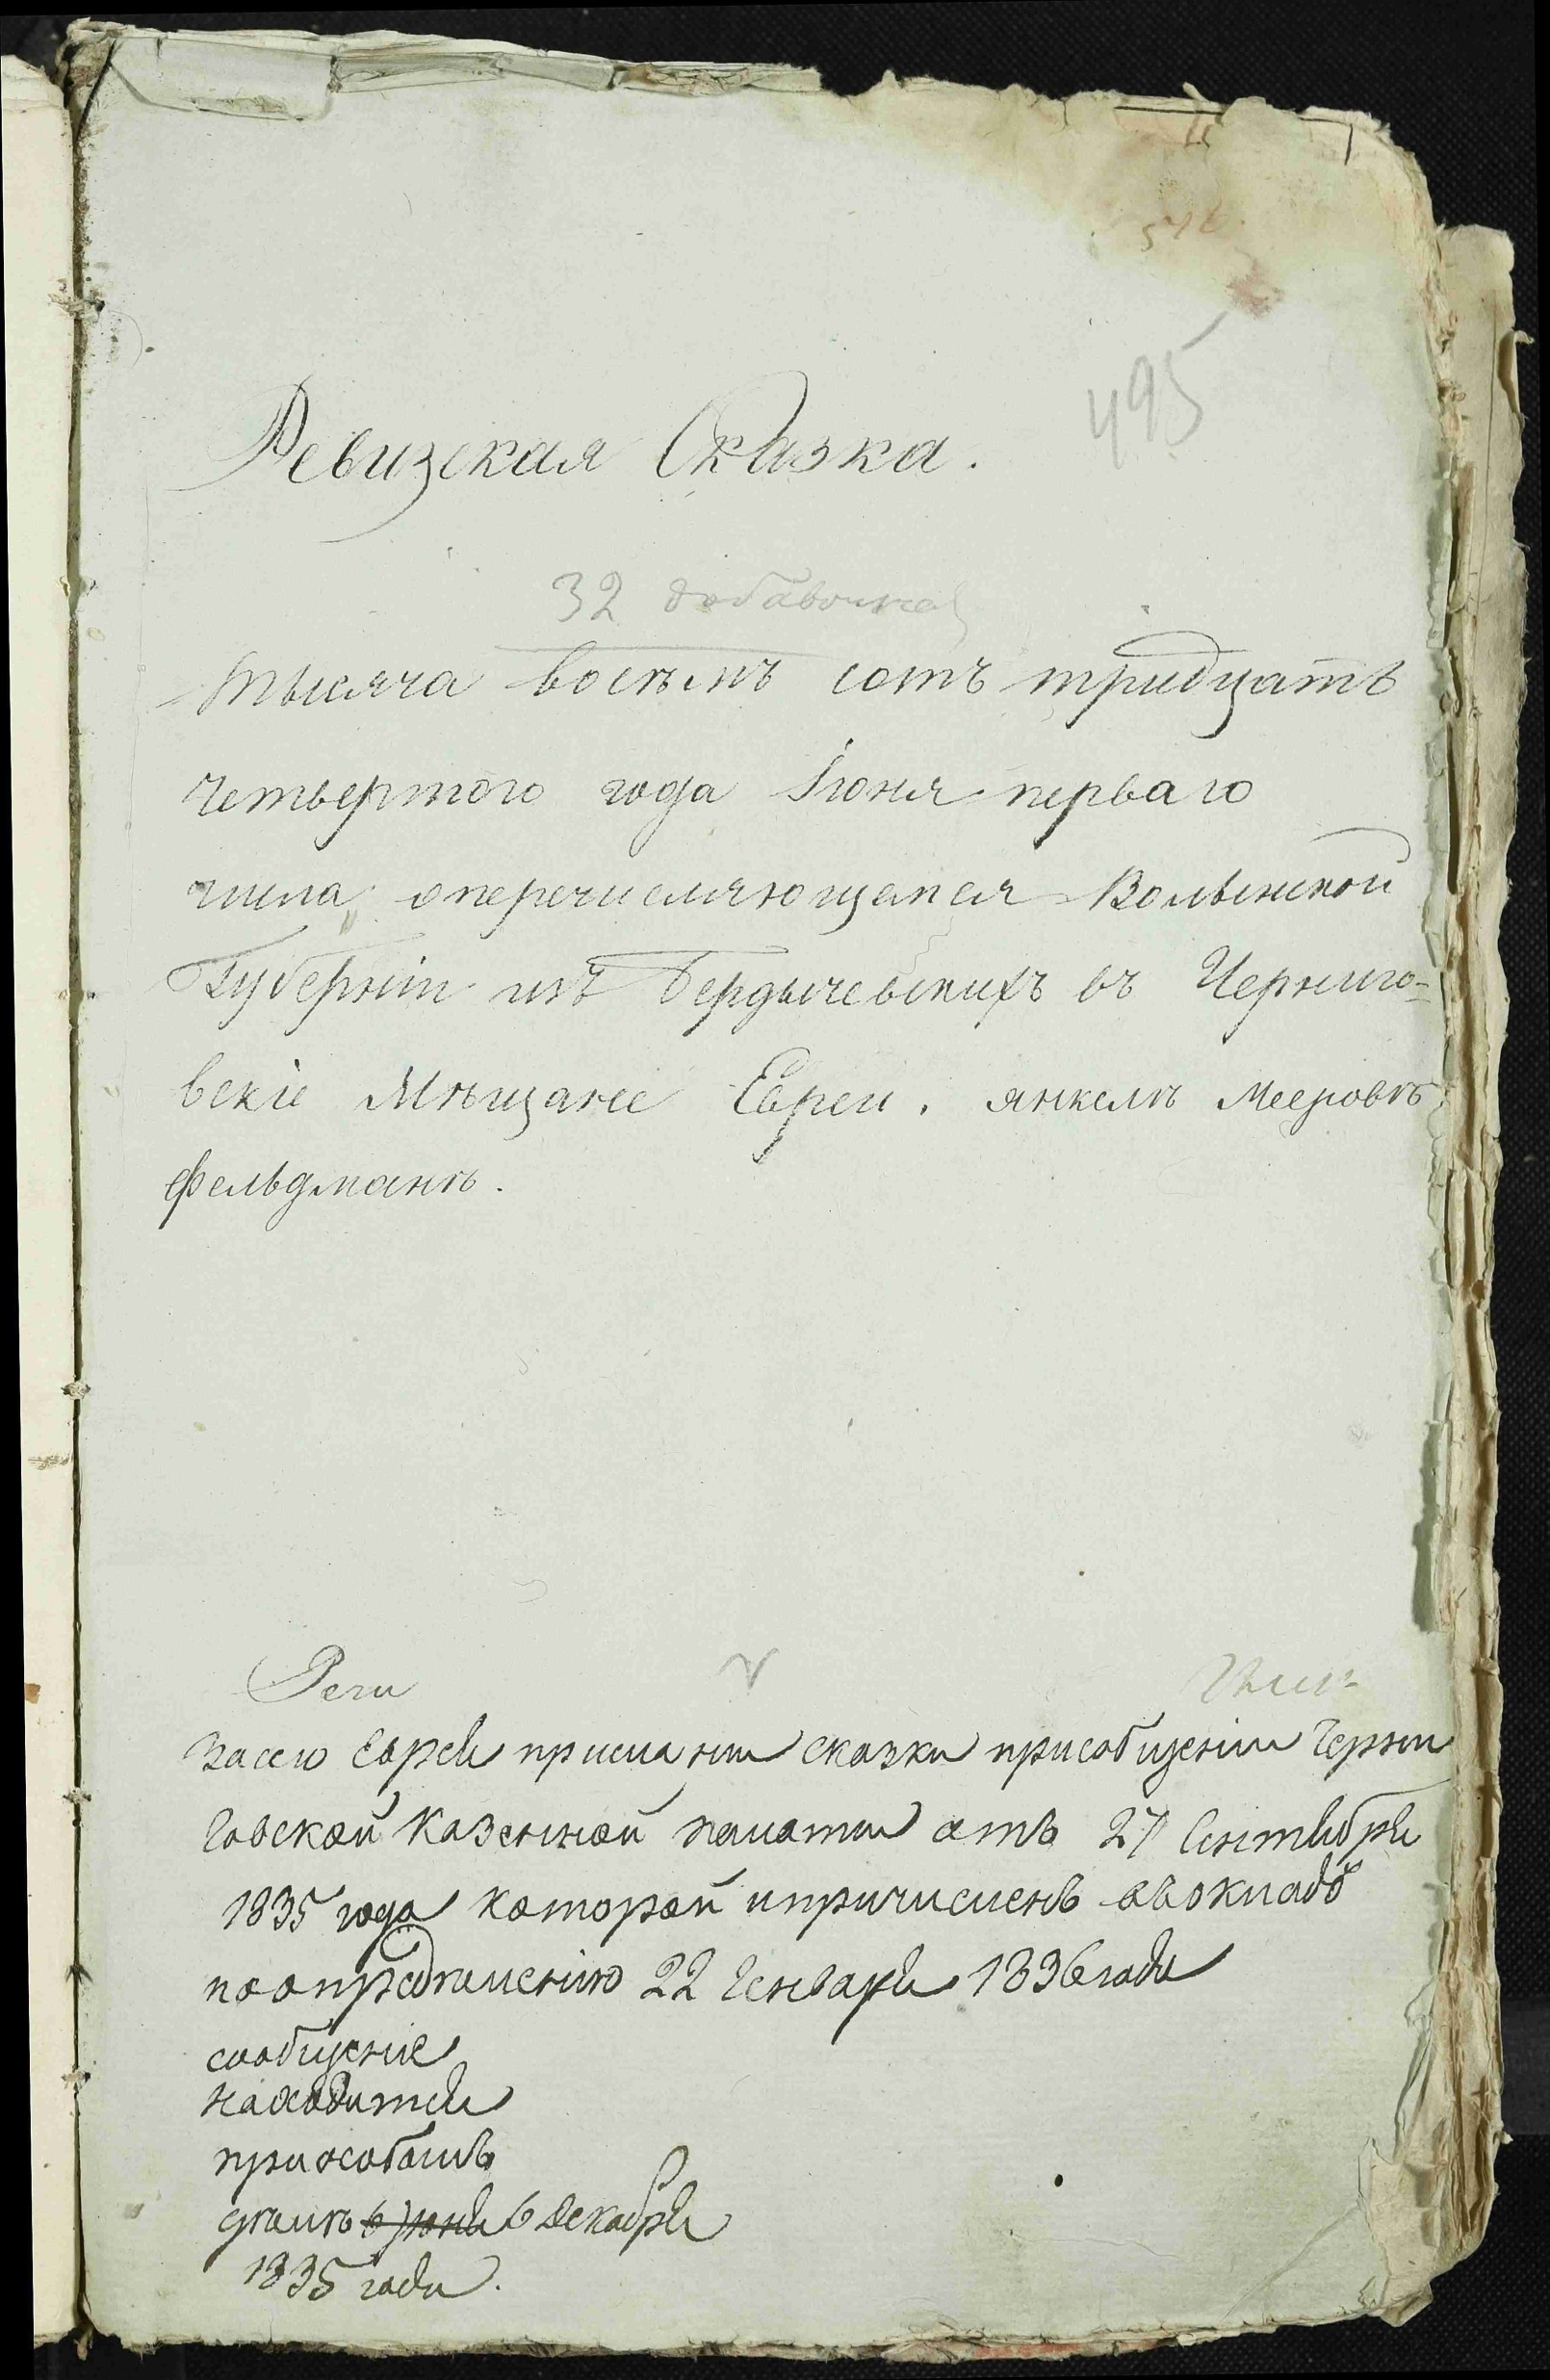 495
Ревизская Сказка.
32 добавочная
тысяча восѣмъ сотъ тридцатъ
четвертого года Іюня перваго
числа, оперечисляющемся Волынской
Губерніи изъ Бердычевскихъ въ Черниго-
вскіе Мѣщане Еврей. Янкель Мееровъ
Фельдманъ.
насего Еврея прислани сказки присобщеніи Черни
говской Казенной палаты отъ 27 Сентября
1835 года которой ипричисленъ въокладъ
поопредѣленію 22 Генваря 1836 года
сообщеніе
находится
приособомъ
дѣлѣ 6 Юня 6 декабря
1835 года.